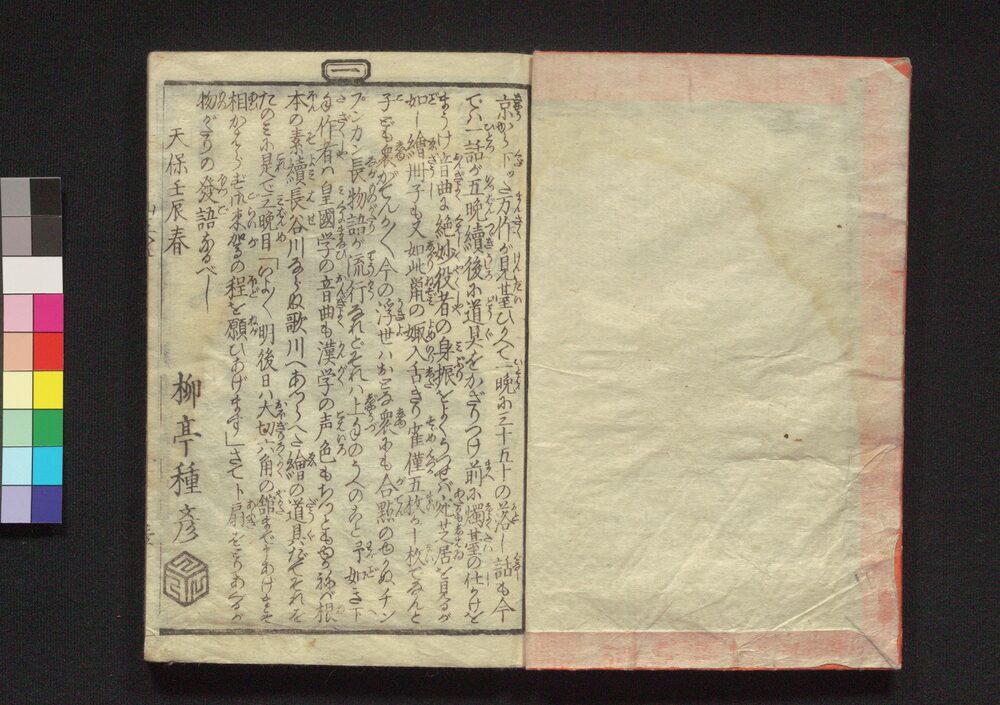 一
京から下つた万作が見臺ひかへて一晩に三十五十の落し話も今
では一話が五晩續後に道具をかざりつけ前に燭臺の仕かけを
まうけ音曲に絶妙役者の身振をよくうつせば芝居を見るが
如し繪冊子も又如此鼠の娵入舌きり雀僅五枚か十枚でなんと
子ども衆がてんか〳〵今の浮世はおとな衆にも合點のゆかぬチン
プンカン長物語が流行なれどそれは上手のうへのこと予如き下
手作者は皇國学の音曲も漢学の声色も
本の素續長谷川ならぬ歌川へあつらへた繪の道具だてそれを
たのみに是で三晩目「いよ〳〵明後日は大切六角の舘まで
相かはらず御来駕の程を願ひあげます」さてト扇をとりあぐるが
物がたりの發語なるべし
天保壬辰春
柳亭種彦